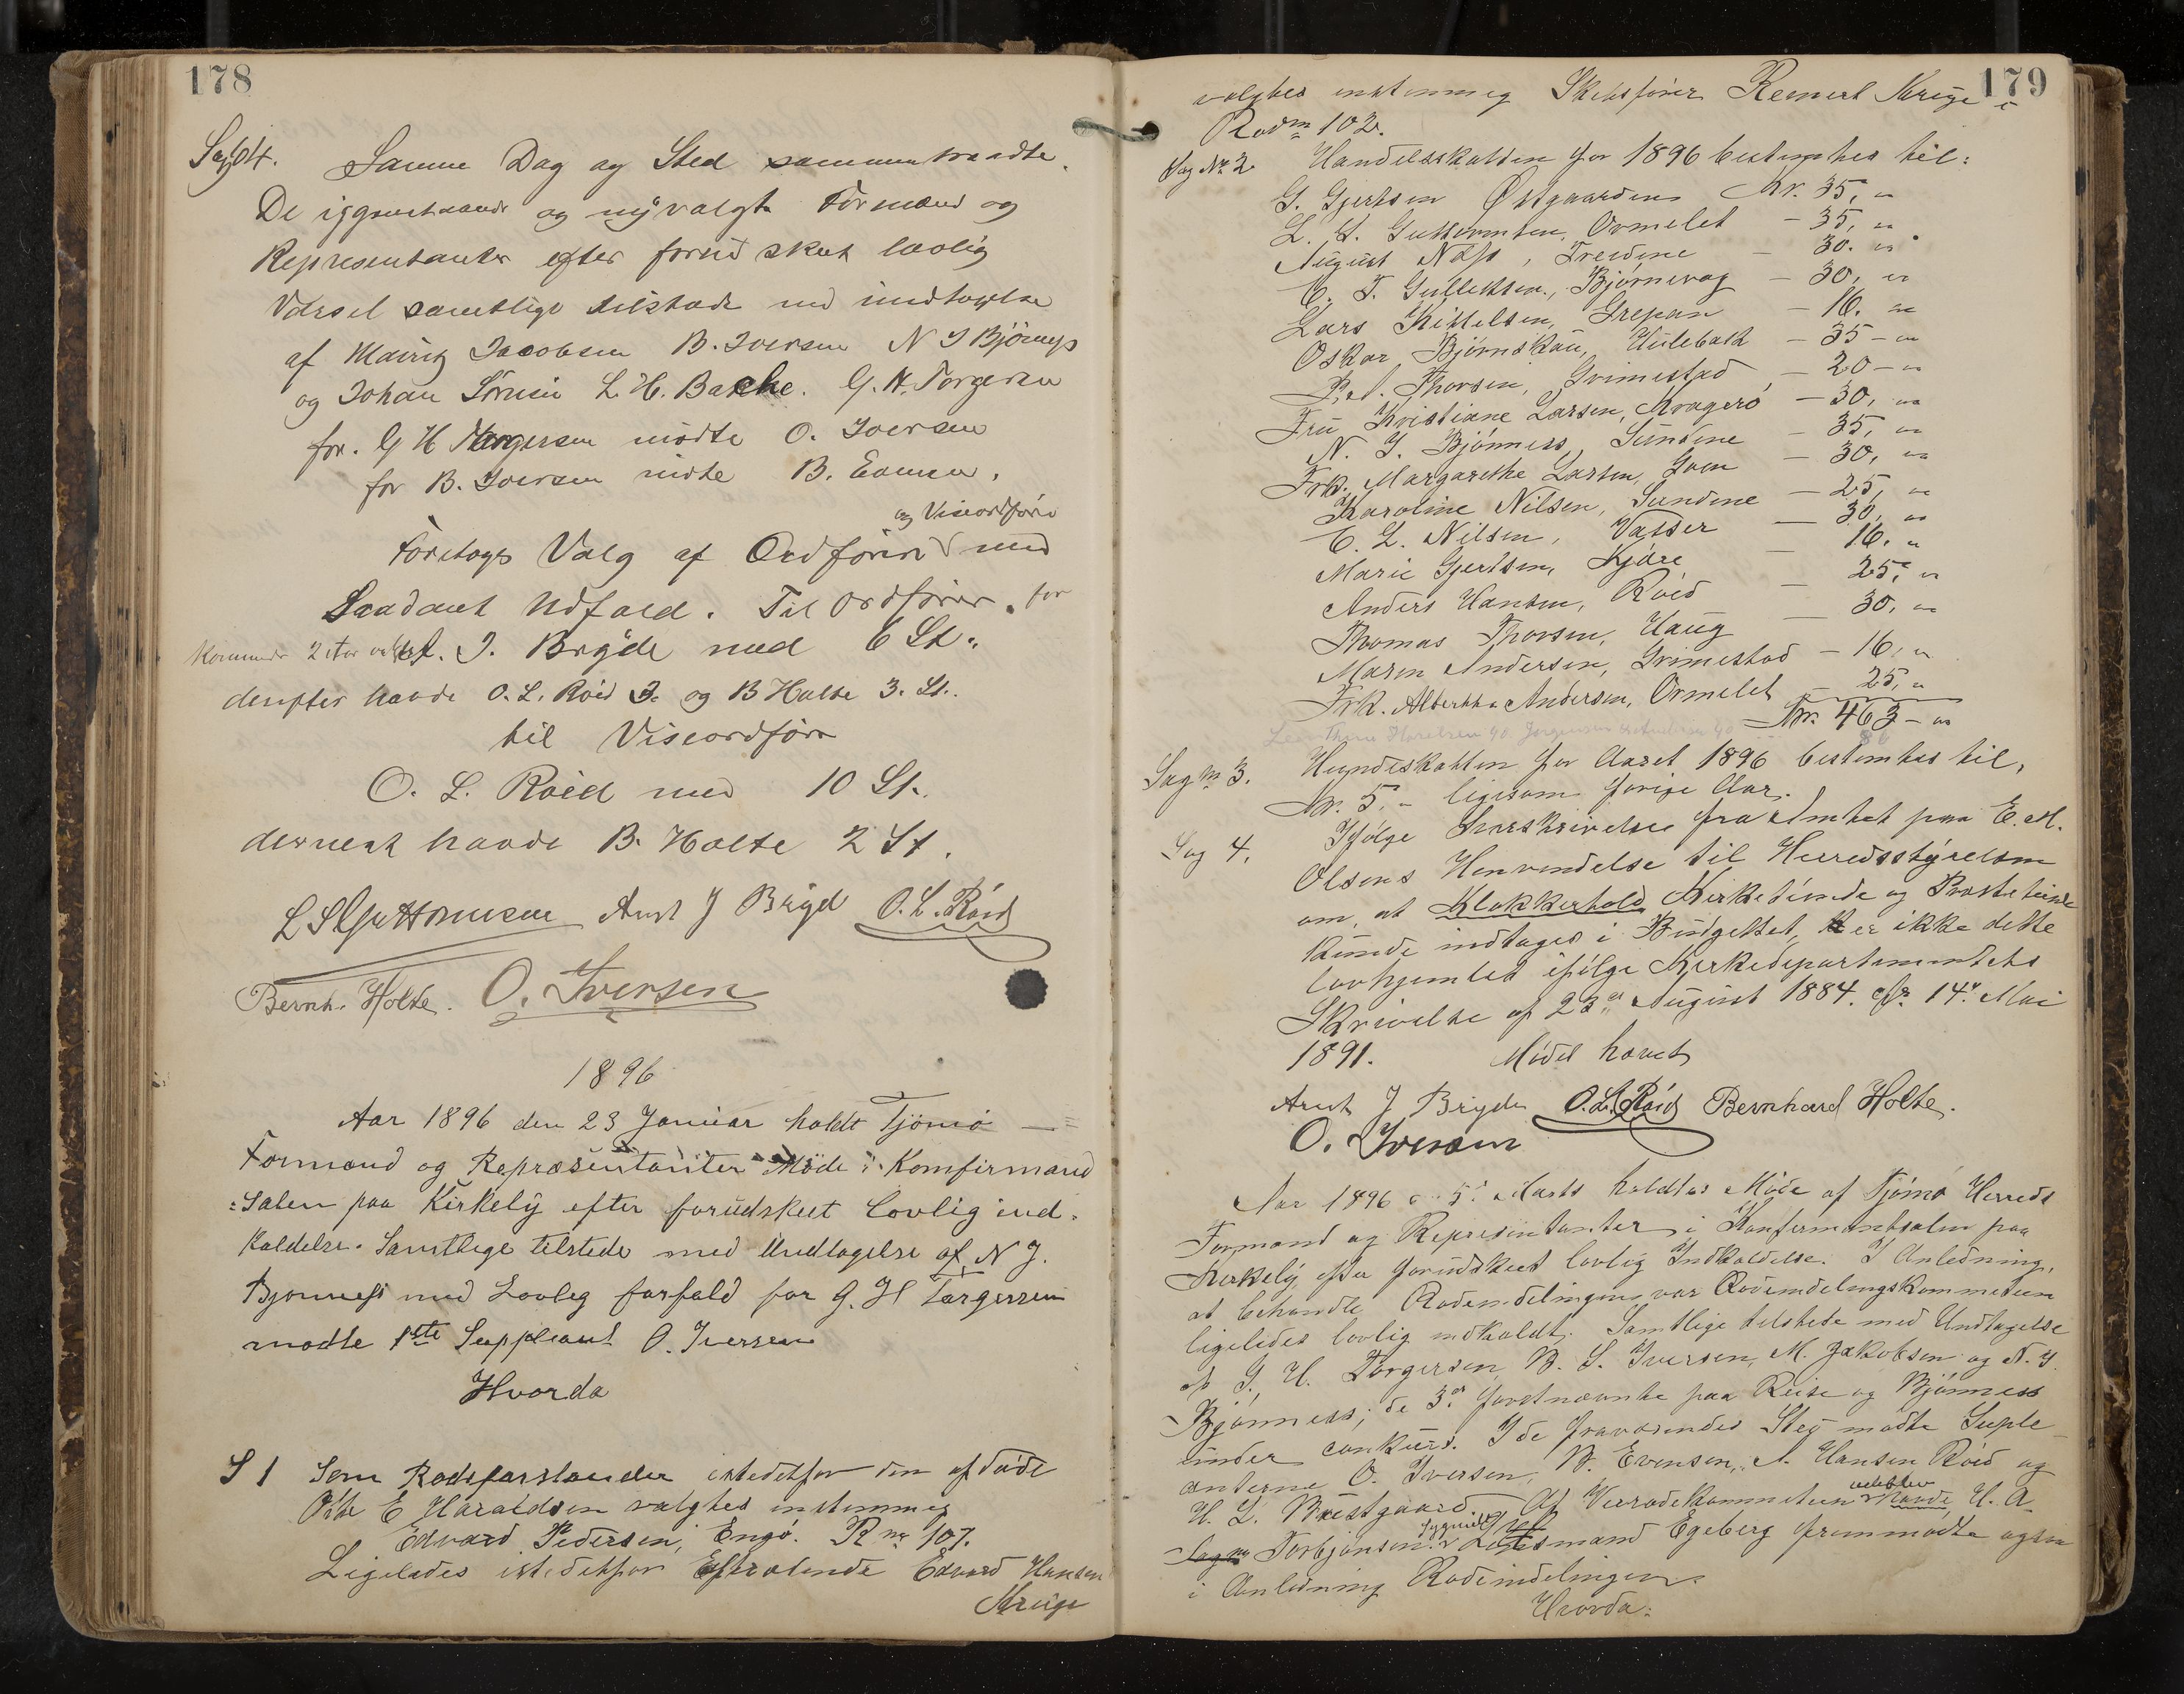 178
Sag 4. Samme Dag og Sted sammentraadte
De igjenstaaende og nyvalgte Formænd og
Representanter efter forud skeet lovlig
Varsel samtlige tilstede med undtagelse
af Mauritz Jacobsen B. Iversen N J Bjönnes
og Johan Sörensen L. H. Bakke. G. H. Torgersen
for. G H Torgersen mödte O. Iversen
for B. Iversen mödte B. Evensen.
og Viseordförer
Foretoges Valg af Ordförer med
Saadant Udfald. Til Ordförer for
kommende 2 Aar valgtes A. J. Bryde med 6 St.
derefter havde O. L. Röed 3. og B Holte 3. St.
til Viseordförer
O. L. Röed med 10 St.
dernest havde B. Holte 2 St.
L S Guttormsen Arnt J Bryde O. L. Röed
Bernh. Holte. O. Iversen
1896
Aar 1896 den 23 Januar holdt Tjömö
Formænd og Repræsentanter Möde i Komfirmand
Salen paa Kirkely efter forudskeet Lovlig ind-
kaldelse. Samtlige tilstede med Undtagelse af N J.
Bjonness med Lovleg forfald for G. H Torgersen
mødte 1ste Suppleant O. Iversen
Hvorda
S 1 Som Rodeforstander istedetfor den afdöde
E Haraldsen valgtes enstemmig
Edvard Pedersen, Engö. R no 107.
Ligeledes istedetfor Edvard Hansen
Krüge
179
valgtes enstemmig Skibsförer Reinert Krüge i
Rode no 102.
Sag No 2. Handelsskatten for 1896 bestemtes til:
G. Gjertsen Østgaarden Kr. 35, "
L. S. Guttormsen, Ormelet - 35, "
August Næss, Treidene - 30. "
C. F. Gullichsen, Bjørnevag - 30, "
Lars Kittelsen, Grepan - 16. "
Oskar Bjørnskau, Hulebak - 35 - "
P. A. Thorsen, Grimestad - 20 - "
Fru Kristiane Larsen, Kragerö - 30, "
N. J. Bjönness, Sundene - 35, "
Frk. Margarethe Larsen, Goen - 30, "
Karoline Nilsen, Sundene - 25, "
C. L. Nilsen, Vasser - 30, "
Marie Gjertsen, Kjære - 16. "
Anders Hansen, Röed - 25, "
Thomas Thorsen, Haug - 30, "
Maren Andersen, Grimestad - 16, "
Frk. Alberthe Andersen, Ormelet - 25, "
Kr. 463 - "
Sag no 3. Hundeskatten for Aaret 1896 bestemtes til,
Kr. 5. - ligesom forige Aar.
Sag 4. Ifölge Svarskrivelse fra Amtet paa E. M.
Olsens Henvendelse til Herredsstyrelsen
om, at Klokkerhold Kirketiende og Prestetiende
kunde indtages i Budgettet, er ikke dette
lovhjemlet ifölge Kirkedepartementets
Skrivelse af 23de August 1884. Jfr. 14de Mai
1891. Mödet hævet
Arnt J Bryde O. L. Röed Bernhard Holte.
O. Iversen
Aar 1896 5te Marts holdtes Möde af Tjömö Herreds
Formænd og Representanter i Konfirmantsalen paa
Kirkely efter forudskeet lovlig Indkaldelse. I Anledning,
at behandle Rodeindelingen var Rodeindelingskommiteen
ligeledes lovlig indkaldt. Samtlige tilstede med Undtagelse
af G. H. Torgersen, B. L. Iversen, M. Jakobsen og N. J.
Bjönness; de 3de förstnævnte paa Reise og Bjönness
under conkurs. I de fraværendes Sted mødte Suple-
anterne O. Iversen, B. Evensen, A. Hansen Röed og
H. L. Bræstgaard. Af Veirodekommiteen udeblev H. A.
Torbjønsen. Lensmand Egeberg fremmødte ogsaa
i Anledning Rodeindelingen.
Hvorda: